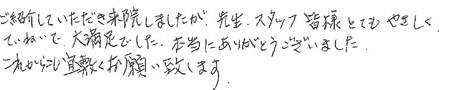 ご紹介していただき来院しましたが、先生、スタッフ皆様とてもやさしく、
ていねいで、大満足でした。本当にありがとうございました。
これからも宜敷くお願い致します。